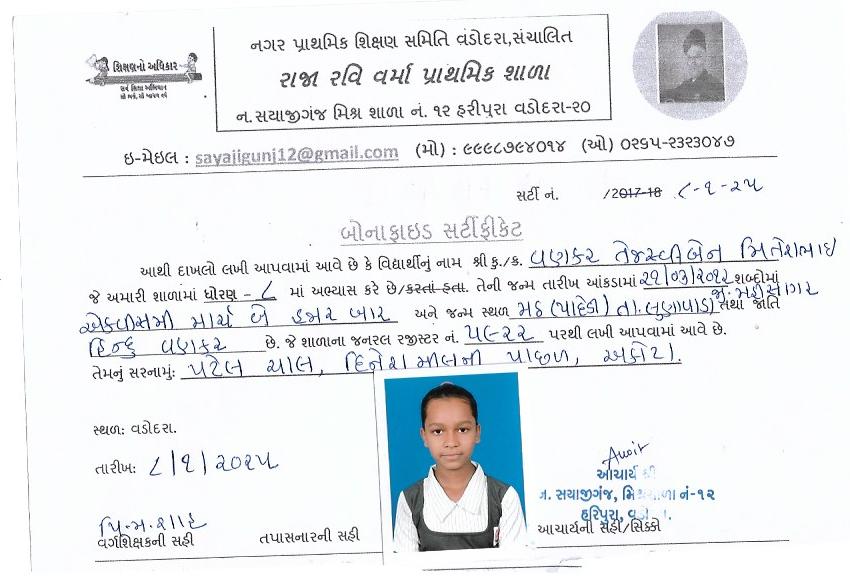 નગર પ્રાથમિક શિક્ષણ સમિતિ વંડોદરા,સંચાલિત
શિક્ષણનો અધિકાર
રાજા રવિ વર્મા પ્રાથમિક શાળા
સર્વ શિક્ષા અભિયાન
ન.સયાજીગંજ મિશ્ર શાળા નં. ૧૨ હરીપુરા વડોદરા-૨૦
ઇ-મેઇલ : sayajigunj12@gmail.com (મો) : ૯૯૯૮૭૯૪૦૧૪ (ઓ) ૦૨૬૫-૨૩૨૩૦૪૭
સર્ટી નં. /2017-18 ૮-૧-૨૫
બોનાફાઇડ સર્ટીફીકેટ
આથી દાખલો લખી આપવામાં આવે છે કે વિદ્યાર્થીનું નામ શ્રી કુ./ક. વણકર તેજસ્વીબેન મિતેશભાઇ
જે અમારી શાળામાં ધોરણ - ૮ માં અભ્યાસ કરે છે/કરતાં હતા. તેની જન્મ તારીખ આંકડામાં ૨૧/૦૩/૨૦૧૨ શબ્દોમાં
એકવીસમી માર્ચ બે હજાર બાર અને જન્મ સ્થળ મઠ (પાદેડી) તા.લુણાવાડા જી.મહીસાગર તથા જાતિ
હિન્દુ વણકર છે. જે શાળાના જનરલ રજીસ્ટર નં. ૫૮૨૨ પરથી લખી આપવામાં આવે છે.
તેમનું સરનામું: પટેલ ચાલ, દિનેશ મીલની પાછળ, અકોટા.
સ્થળ: વડોદરા.
તારીખ: ૮/૧/૨૦૨૫
આચાર્ય શ્રી
ન. સયાજીગંજ, મિશ્રશાળા નં-૧૨
હરિપુરા, વડો
વર્ગશિક્ષકની સહી તપાસનારની સહી આચાર્યની સહી/સિક્કો